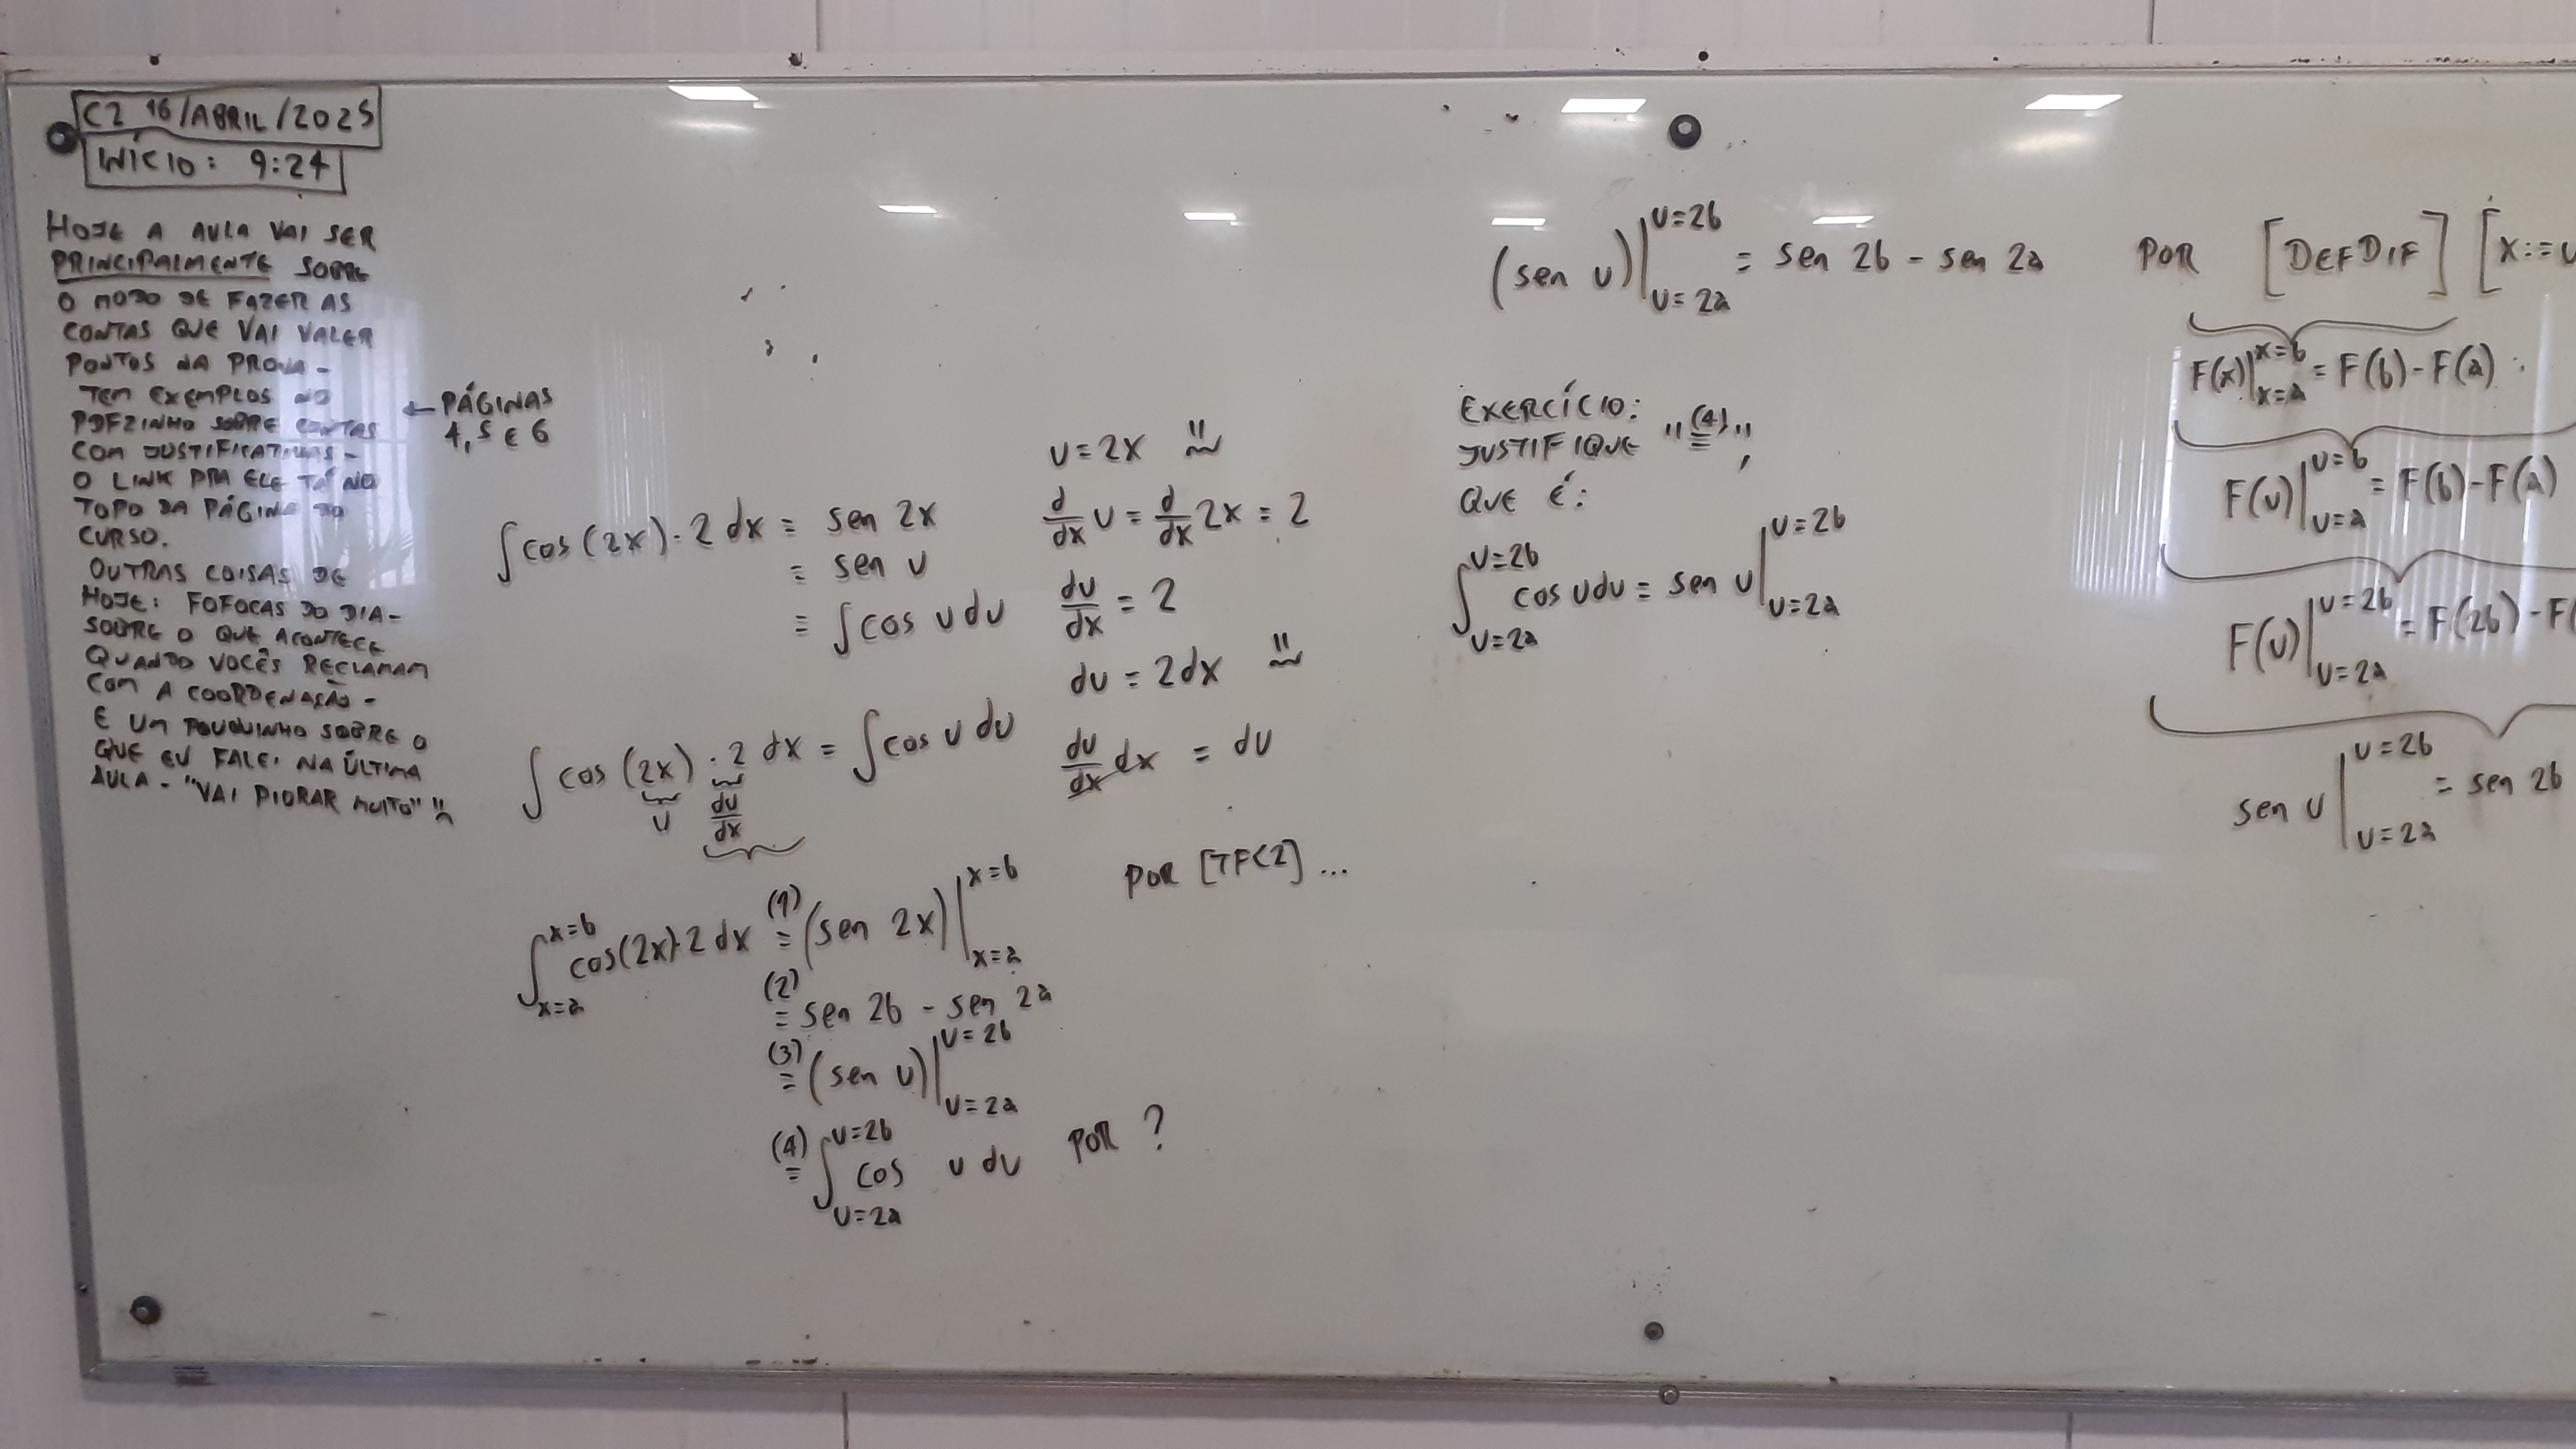 C2 16/ABRIL/2025
INÍCIO: 9:24
HOJE A AULA VAI SER
PRINCIPALMENTE SOBRE
O MODO DE FAZER AS
CONTAS QUE VAI VALER
PONTOS NA PROVA -
TEM EXEMPLOS NO
PDFZINHO SOBRE CONTAS
COM JUSTIFICATIVAS -
O LINK PRA ELE TÁ NO
TOPO DA PÁGINA DO
CURSO.
OUTRAS COISAS DE
HOJE: FOFOCAS DO DIA -
SOBRE O QUE ACONTECE
QUANDO VOCÊS RECLAMAM
COM A COORDENAÇÃO -
E UM POUQUINHO SOBRE O
QUE EU FALEI NA ÚLTIMA
AULA - "VAI PIORAR MUITO"
← PÁGINAS
4, 5 E 6
∫ cos (2x) · 2 dx = sen 2x
= sen u
= ∫ cos u du
∫ cos (2x) · 2 dx = ∫ cos u du
u
du/dx
∫_{x=a}^{x=b} cos(2x)·2 dx (1)= (sen 2x) |_{x=a}^{x=b}
(2)= sen 2b - sen 2a
(3)= (sen u) |_{u=2a}^{u=2b}
(4)= ∫_{u=2a}^{u=2b} cos u du POR ?
u = 2x
d/dx u = d/dx 2x = 2
du/dx = 2
du = 2dx
du/dx dx = du
POR [TFC2] ...
(sen u) |_{u=2a}^{u=2b} = sen 2b - sen 2a POR [DEFDIF] [x:=u
EXERCÍCIO:
JUSTIFIQUE "(4)=",
QUE É:
∫_{u=2a}^{u=2b} cos u du = sen u |_{u=2a}^{u=2b}
F(x) |_{x=a}^{x=b} = F(b) - F(a)
F(u) |_{u=a}^{u=b} = F(b) - F(a)
F(u) |_{u=2a}^{u=2b} = F(2b) - F(
sen u |_{u=2a}^{u=2b} = sen 2b